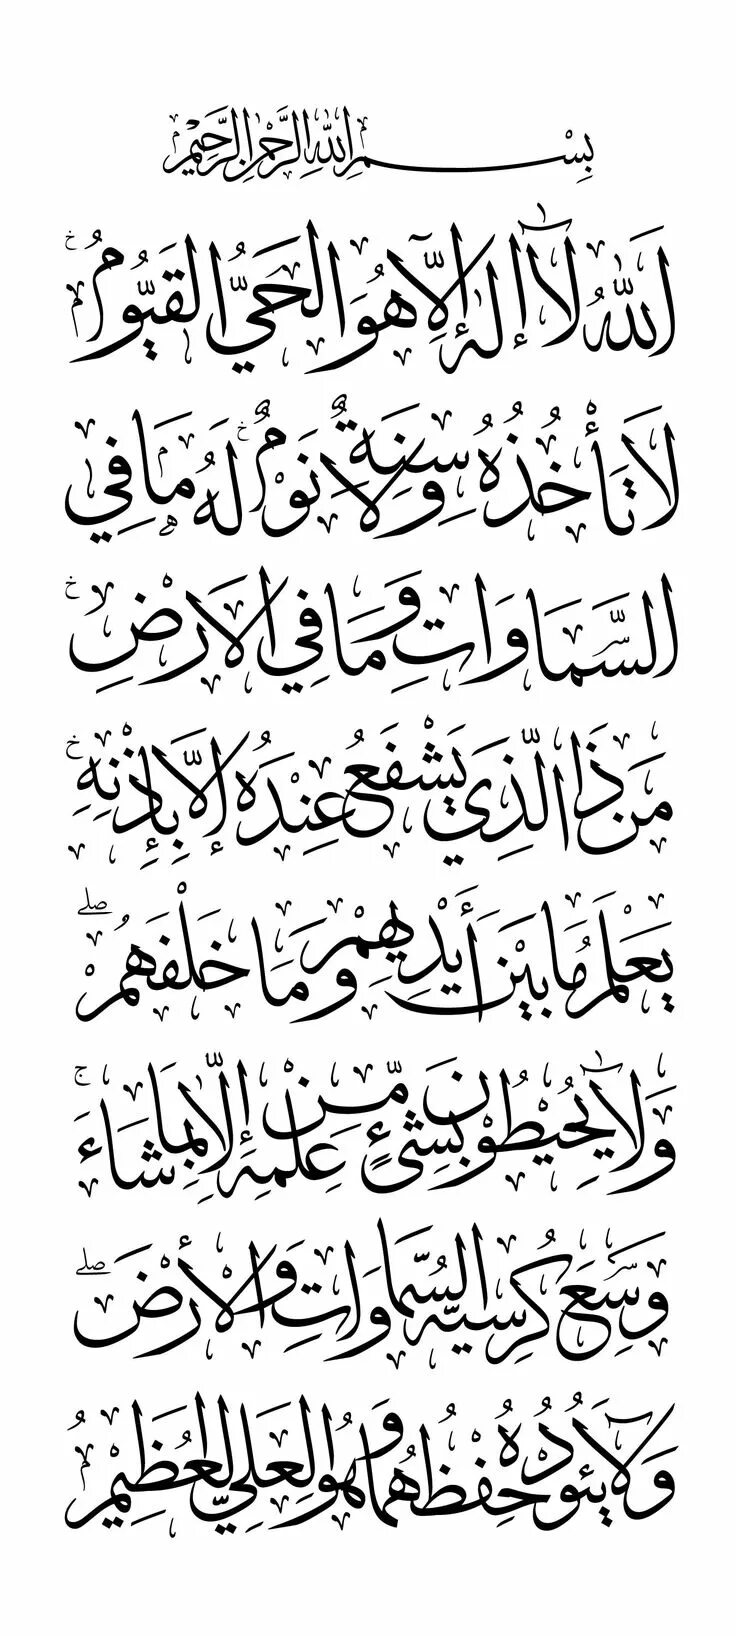 بِسْمِ اللهِ الرَّحْمٰنِ الرَّحِيْمِ
اَللّٰهُ لَآ إِلٰهَ إِلَّا هُوَ الْحَيُّ الْقَيُّوْمُ
لَا تَأْخُذُهُ سِنَةٌ وَلَا نَوْمٌ لَهُ مَا فِي
السَّمَاوَاتِ وَمَا فِي الْأَرْضِ
مَنْ ذَا الَّذِي يَشْفَعُ عِنْدَهُ إِلَّا بِإِذْنِهِ
يَعْلَمُ مَا بَيْنَ أَيْدِيهِمْ وَمَا خَلْفَهُمْ
وَلَا يُحِيْطُوْنَ بِشَيْءٍ مِّنْ عِلْمِهِ إِلَّا بِمَا شَاءَ
وَسِعَ كُرْسِيُّهُ السَّمَاوَاتِ وَالْأَرْضَ
وَلَا يَئُودُهُ حِفْظُهُمَا وَهُوَ الْعَلِيُّ الْعَظِيْمُ